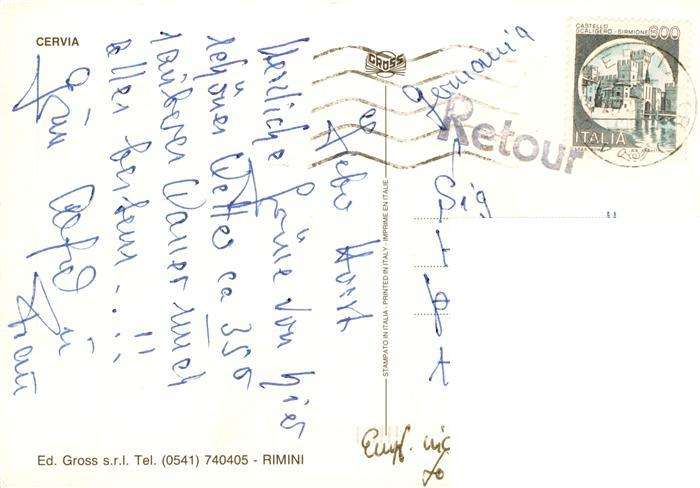 CERVIA
GROSS
Lieber Horst
Herzliche Grüße von hier
schönes Wetter ca 35°
sauberes Wasser und
alles bestens...!!!
Frau
STAMPATO IN ITALIA - PRINTED IN ITALY - IMPRIMÉ EN ITALIE
Ed. Gross s.r.l. Tel. (0541) 740405 - RIMINI
CASTELLO
SCALIGERO - SIRMIONE
600
ITALIA
Germania
Retour
Sig
Empf.